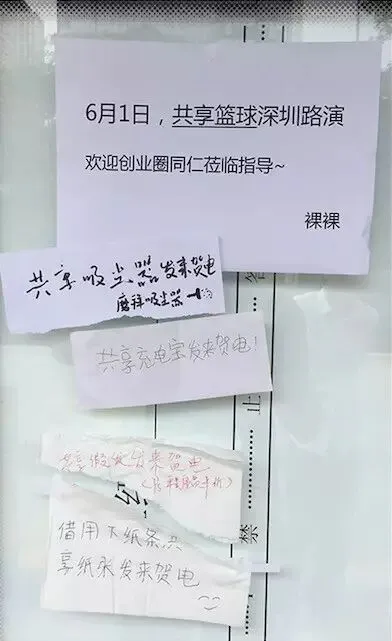 6月1日，共享篮球深圳路演
欢迎创业圈同仁莅临指导~
裸裸
共享吸尘器发来贺电
共享充电宝发来贺电！
发来贺电
借用下纸条共
享纸张发来贺电
止
禁